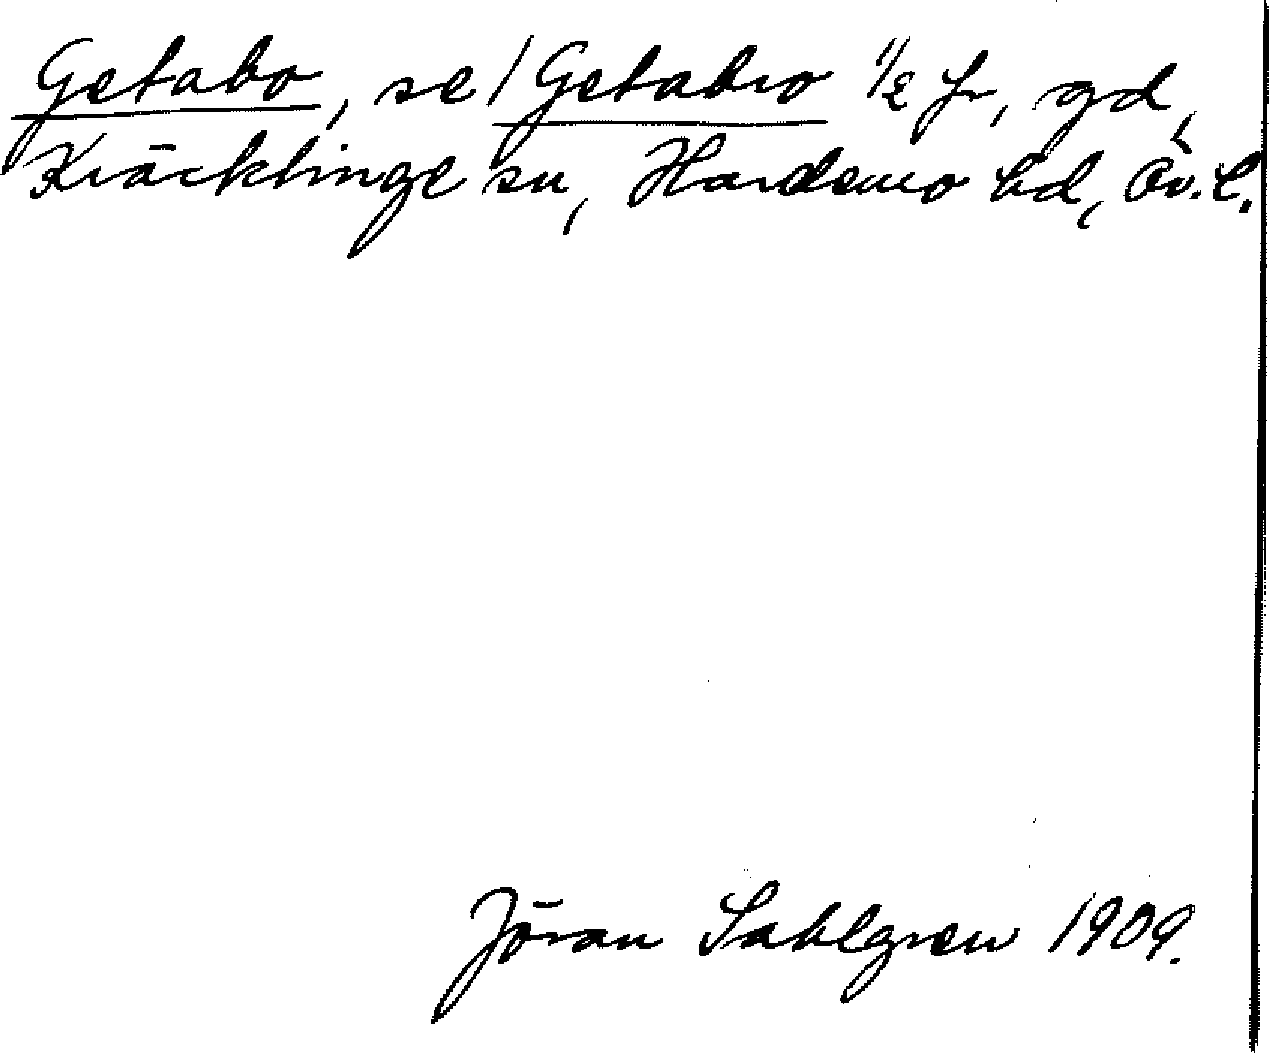 Getabo, se / Getabro 1/2 fr, gd,
Kräcklinge sn, Hardemo hd, Ör. l.
Jöran Sahlgren 1909.